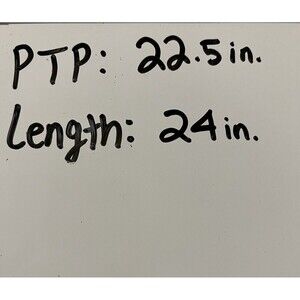 PTP: 22.5 in.
Length: 24 in.